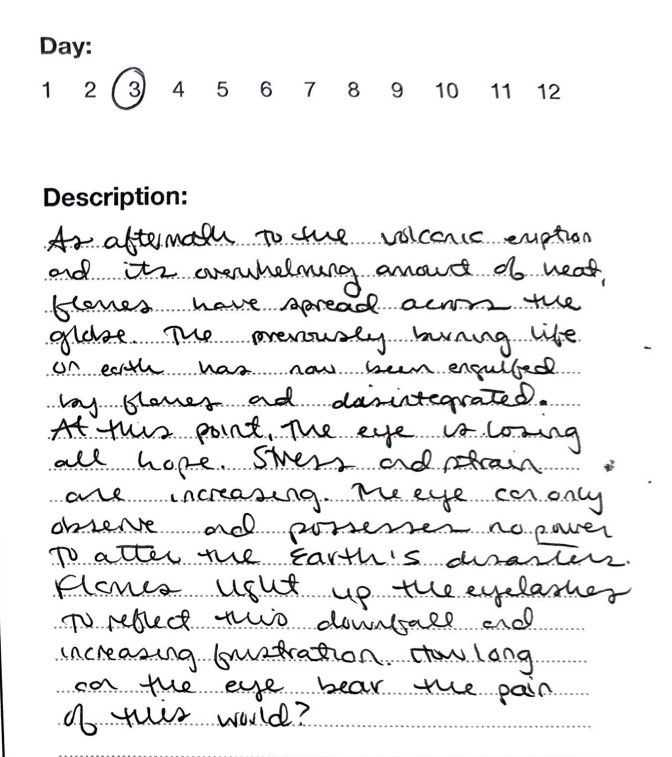 Day:
1 2 3 4 5 6 7 8 9 10 11 12
Description:
As aftermath to the volcanic eruption
and its overwhelming amount of heat,
flames have spread across the
globe. The previously burning life
on earth has now been engulfed
by flames and disintegrated.
At this point, The eye is losing
all hope. Stress and strain
are increasing. The eye can only
observe and possesses no power
to alter the Earth's disasters.
Flames light up the eyelashes
to reflect this downfall and
increasing frustration. How long
can the eye bear the pain
of this world?